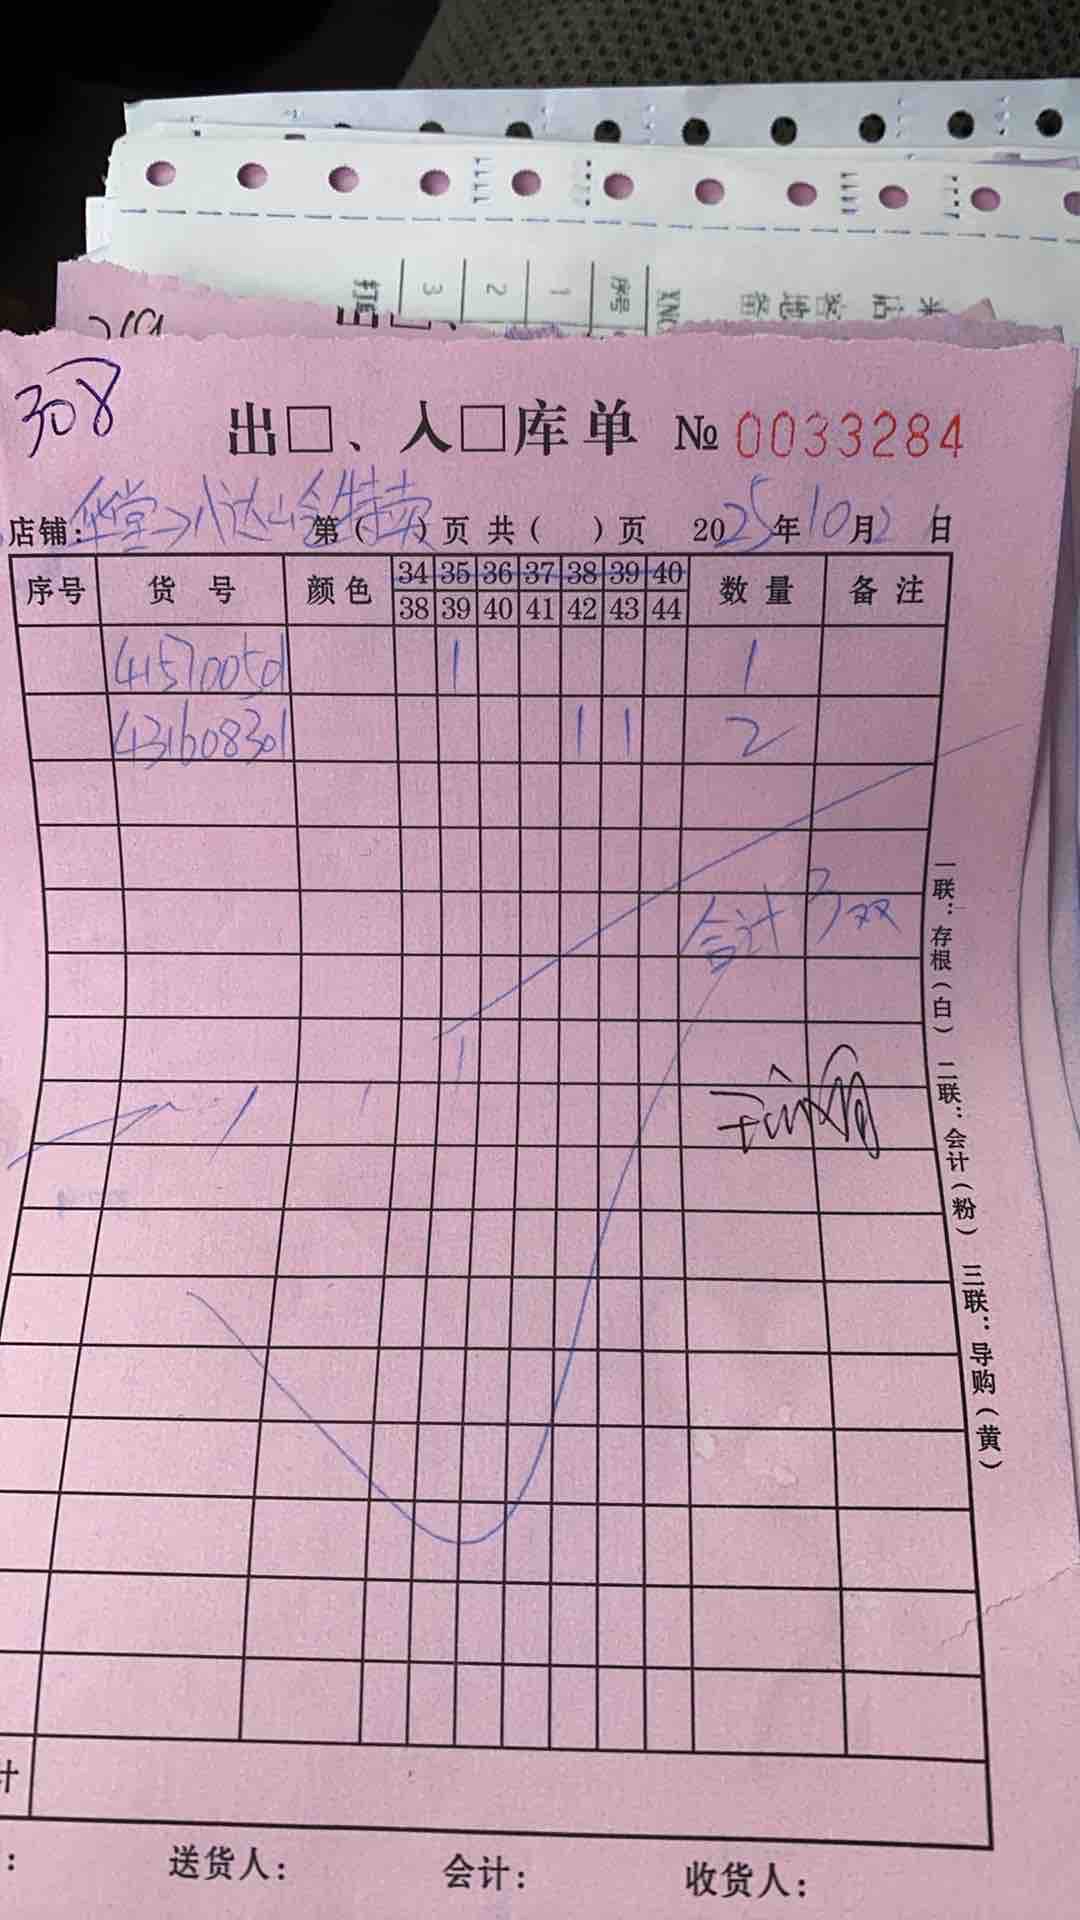 3
2
1
序号
308
出□、入□库单 № 0033284
店铺: 华堂→八达岭仓特卖 第( )页 共( )页 2025年10月2日
序号 货号 颜色 34 35 36 37 38 39 40 数量 备注
38 39 40 41 42 43 44
415700501 1 1
431608301 1 1 2
合计 3双
一联:存根(白) 二联:会计(粉) 三联:导购(黄)
计
送货人: 会计: 收货人: